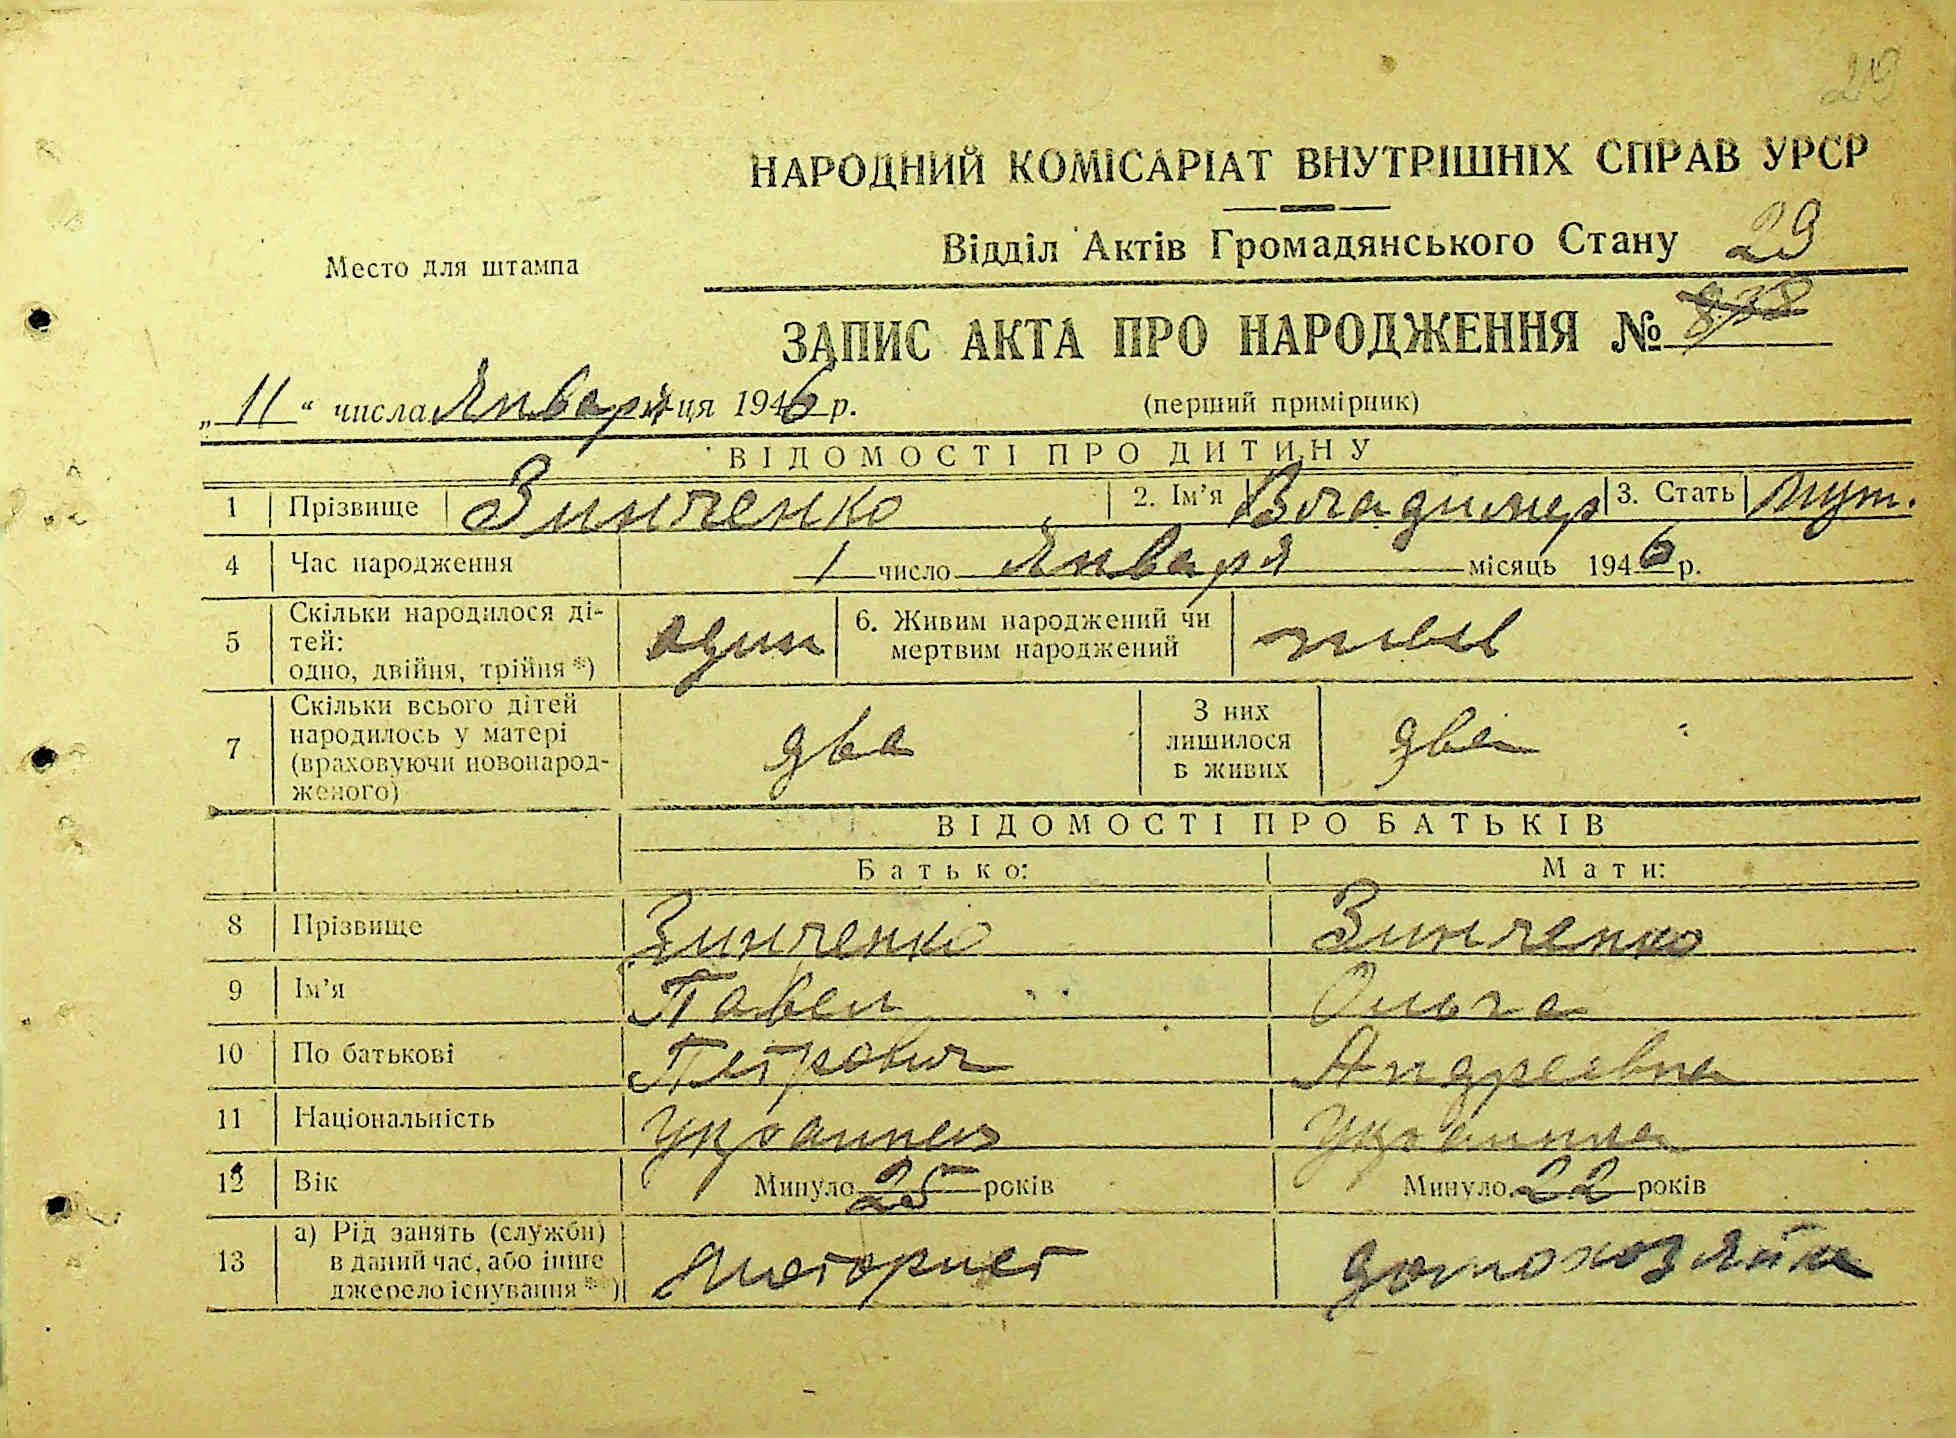 29
НАРОДНИЙ КОМІСАРІАТ ВНУТРІШНІХ СПРАВ УРСР
Место для штампа
Відділ Актів Громадянського Стану 29
ЗАПИС АКТА ПРО НАРОДЖЕННЯ № 878
„11“ числа Января ця 1946 р. (перший примірник)
ВІДОМОСТІ ПРО ДИТИНУ
1 Прізвище Зинченко 2. Ім’я Владимер 3. Стать муж.
4 Час народження 1 число Января місяць 1946 р.
5 Скільки народилося ді-
тей:
одно, двійня, трійня *) один 6. Живим народжений чи
мертвим народжений жив
7 Скільки всього дітей
народилось у матері
(враховуючи новонарод-
женого) два З них
лишилося
в живих два
ВІДОМОСТІ ПРО БАТЬКІВ
Батько: Мати:
8 Прізвище Зинченко Зинченко
9 Ім’я Павел Ольга
10 По батькові Петрович Андреевна
11 Національність Украинец Украинка
12 Вік Минуло 25 років Минуло 22 років
13 а) Рід занять (служби)
в даний час, або інше
джерело існування **) моторист домохозяйка